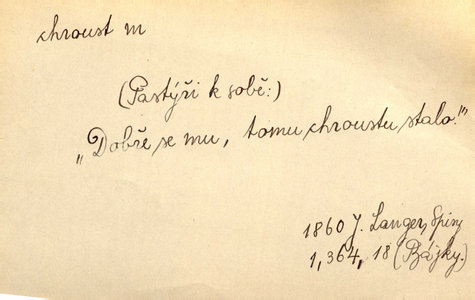 chroust m
(Pastýři k sobě:)
„Dobře se mu, tomu chroustu stalo."
1860 J. Langer, Spisy
1, 364, 18 (Bájky.)